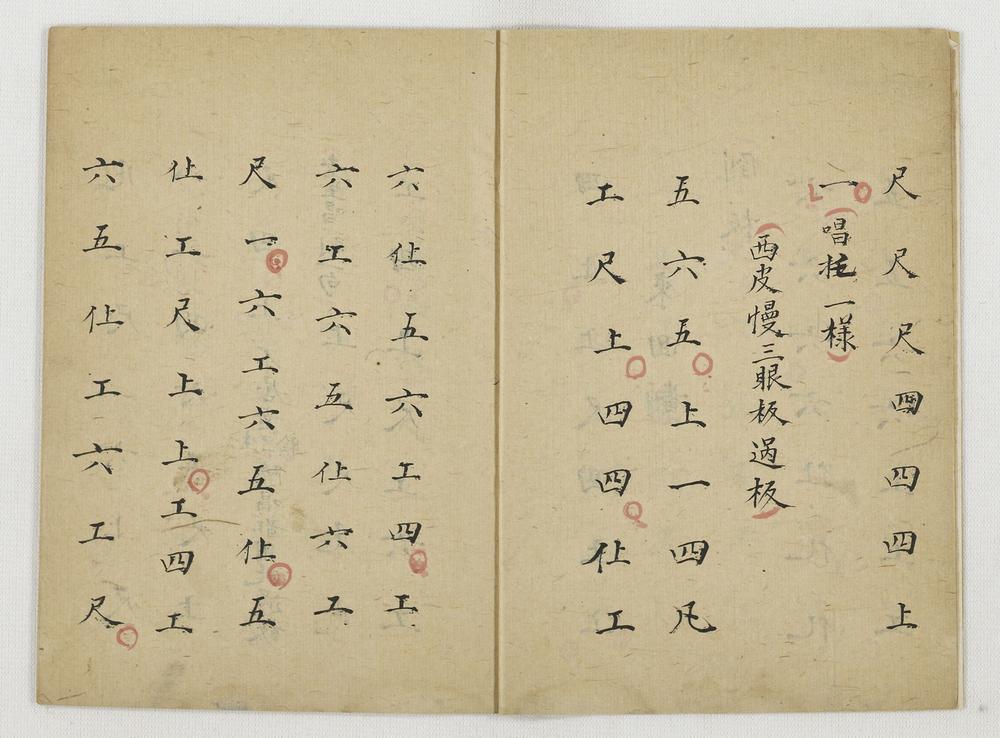 尺尺尺四四四上
一唱托一樣
西皮慢三眼板過板
五六五上一四凡
工尺上四四仩工
六仩五六工四工
六工六五仩六工
尺一六工六五仩五
仩工尺上上工四工
六五仩工六工尺